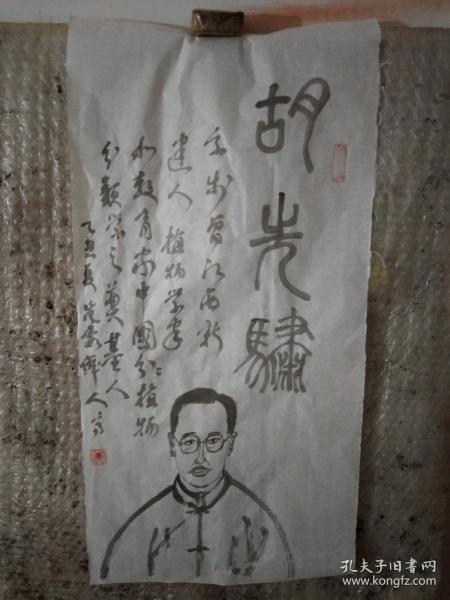 胡先驌
字步曾江西新
建人 植物学家
和教育家中国分植物
分类学之奠基人
乙丑夏
人京
孔夫子旧书网
www.kongfz.com